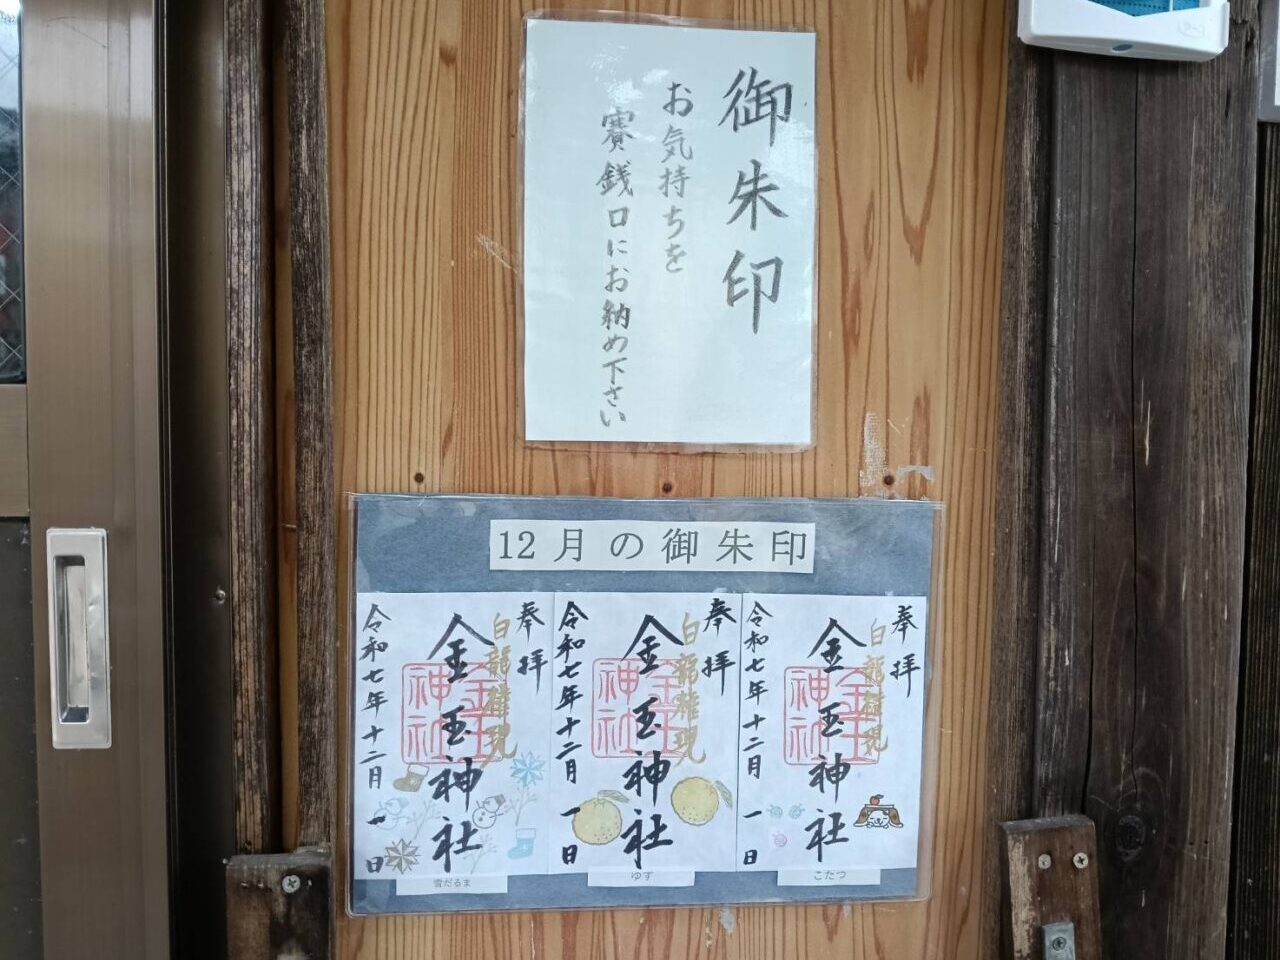 御朱印
お気持ちを
賽銭口にお納め下さい
12月の御朱印
奉拝
白龍権現
金玉神社
金玉神社
令和七年十二月一日
雪だるま
奉拝
白龍権現
金玉神社
金玉神社
令和七年十二月一日
ゆず
奉拝
白龍権現
金玉神社
金玉神社
令和七年十二月一日
こたつ